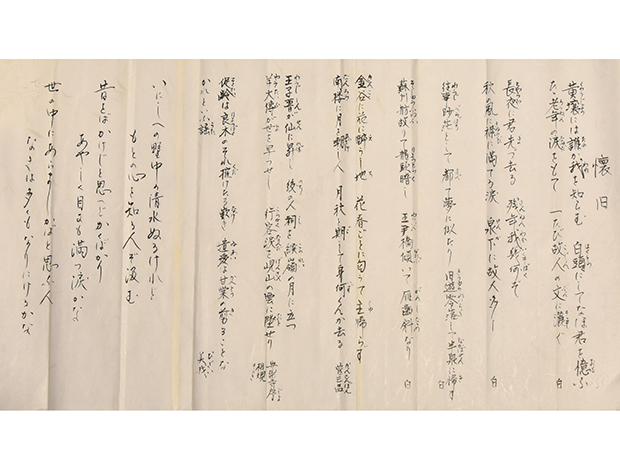 懐旧
黄壌には誰か我を知らむ 白頭にしてなほ君を憶ふ
たゞ老年の涙をもて 一たび故人の文に灑く 白
長夜に君先づ去る 残年我幾何ぞ
秋の風に襟に満てる涙 泉下に故人多し 白
往事眇茫として都て夢に似たり 旧遊零落して半泉に帰す 白
蘇州舫故りて龍頭暗し 王尹橋傾いて雁歯斜なり 白
金谷に花に酔うし地 花春ごとに匂うて主帰らず
南楼に月を嘲し人 月秋と期して身何くんか去る 菅三品
王子晋が仙に昇し 後の人祠を緱嶺の月に立つ
羊太傅が世を早うせし 行客涙を峴山の雲に墜せり 安楽寺序 相規
は良木のそれ摧けたる歎き 遺愛は甘棠の剪ることな
かれといふ詠 美作
いにしへの野中の清水ぬるけれど
もとの心を知る人ぞ汲む
昔をばかけじと思へどかくばかり
あやしく目にも満つ涙かな
世の中にあらましかばと思ふ人
なきは多くもなりにけるかな